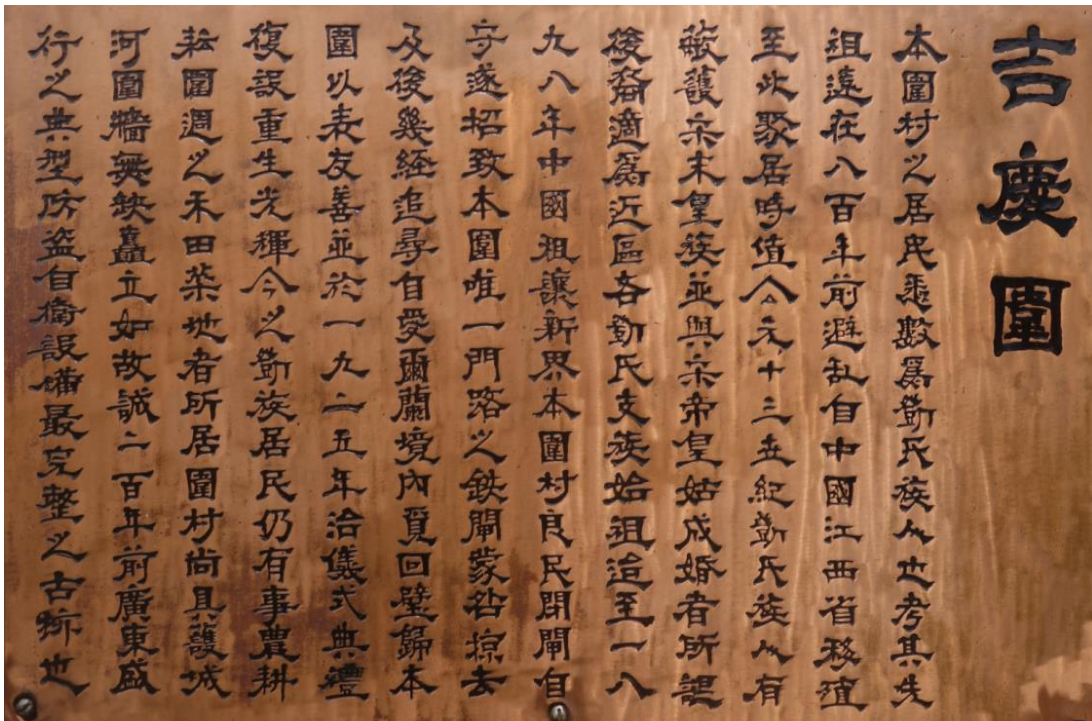 吉慶圍
本圍村之居民悉數爲鄧氏族人也考其先
祖遠在八百年前避乱自中國江西省移殖
至此聚居時值公元十三世紀鄧氏族人有
蔽護宋末皇族並與宋帝皇姑成婚者所誕
後裔適爲近區各鄧氏支族始祖迨至一八
九八年中國租讓新界本圍村良民閉閘自
守遂招致本圍唯一門路之鉄閘蒙掠去
及後幾経追尋自愛爾蘭境內覓回璧歸本
圍以表友善並於一九二五年洽儀式典禮
復設重生光輝今之鄧族居民仍有事農耕
耘圍週之禾田菜地者所居圍村尚具護城
河圍牆無缺矗立如故誠二百年前廣東盛
行之典型防盜自衛設備最完整之古跡也